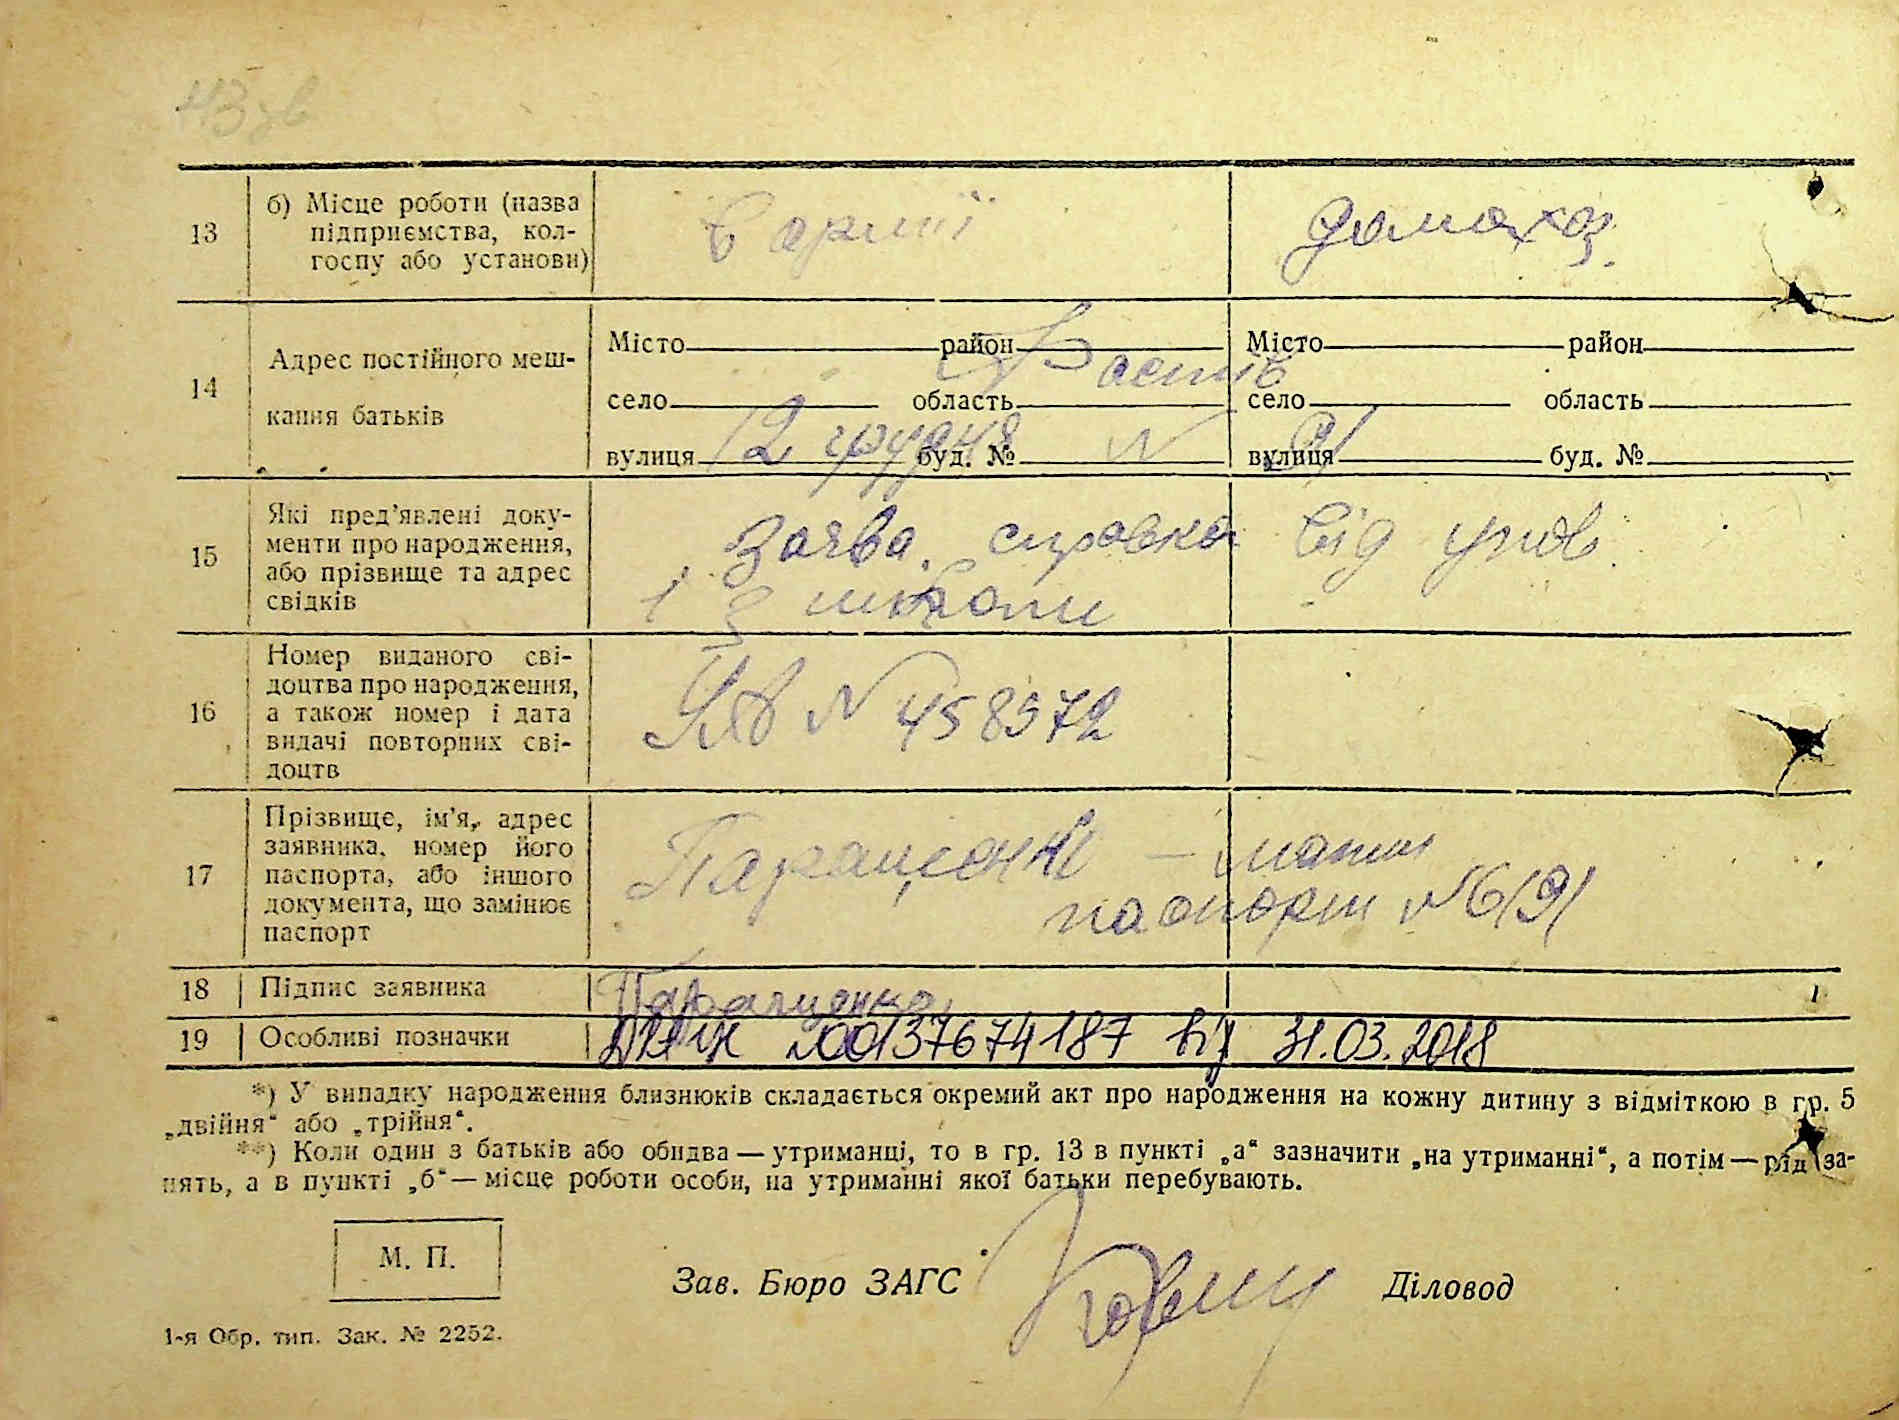 13
б) Місце роботи (назва
підприємства, кол-
госпу або установи)
в армії
домохоз.
14
Адрес постійного меш-
кання батьків
Місто район
село область
вулиця буд. №
Місто район
село область
вулиця буд. №
Фастів
12 грудня № 31
15
Які пред’явлені доку-
менти про народження,
або прізвище та адрес
свідків
Заява, справка від упов.
і з школи
16
Номер виданого сві-
доцтва про народження,
а також номер і дата
видачі повторних сві-
доцтв
№ 458972
17
Прізвище, ім’я, адрес
заявника, номер його
паспорта, або іншого
документа, що замінює
паспорт
— мати
паспорт № 6191
18
Підпис заявника
19
Особливі позначки
00137674187 від 31.03.2018
*) У випадку народження близнюків складається окремий акт про народження на кожну дитину з відміткою в гр. 5
„двійня“ або „трійня“.
**) Коли один з батьків або обидва — утриманці, то в гр. 13 в пункті „а“ зазначити „на утриманні“, а потім — рід за-
нять, а в пункті „б“ — місце роботи особи, на утриманні якої батьки перебувають.
М. П.
Зав. Бюро ЗАГС
Діловод
1-я Обр. тип. Зак. № 2252.